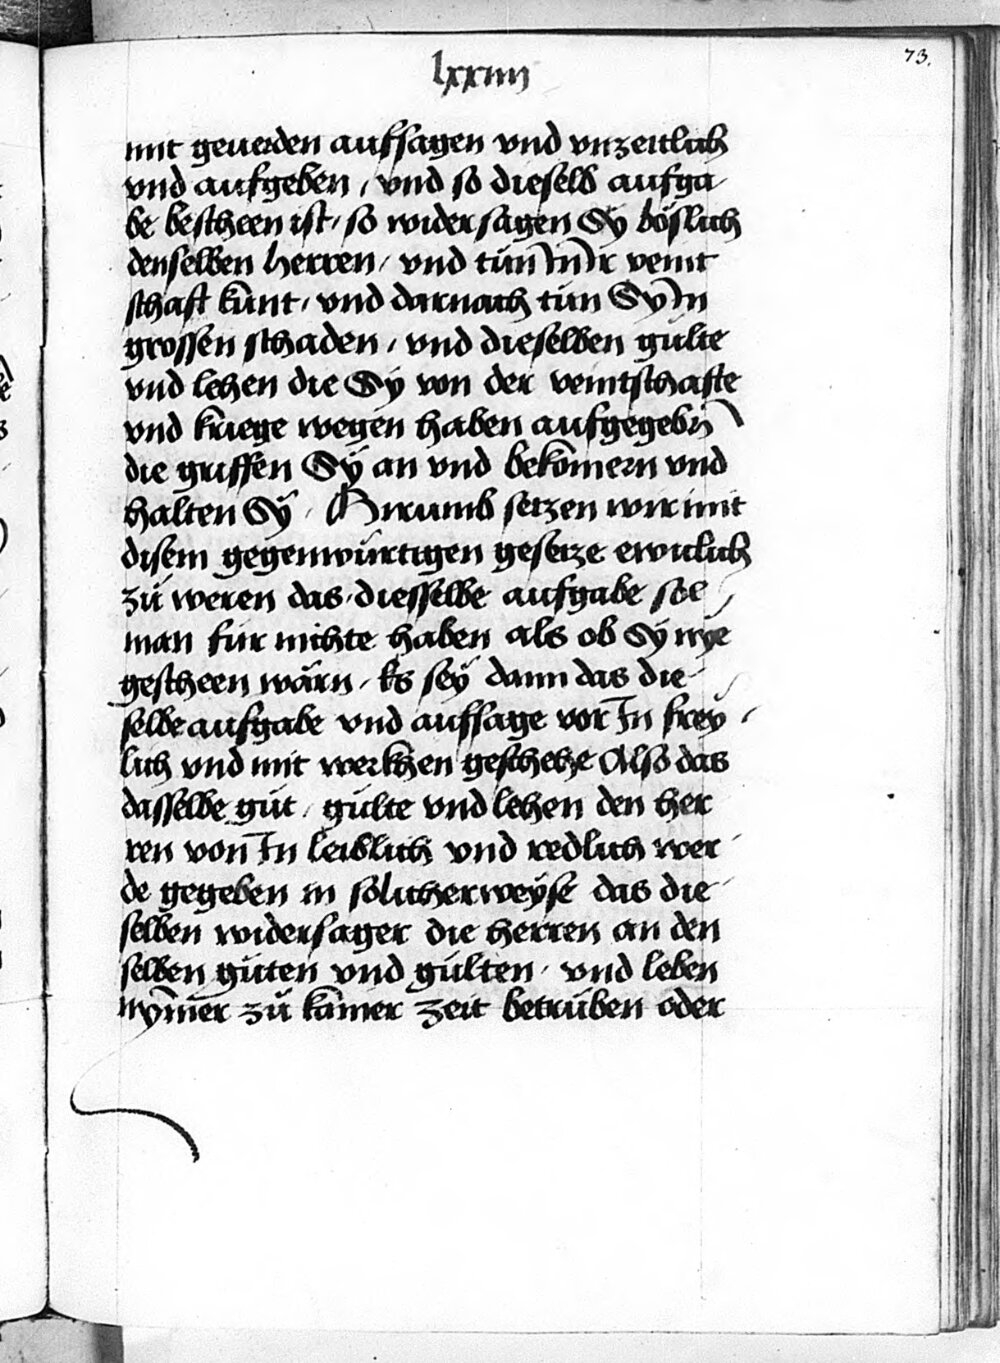 73.
lxxiiii
mit geuerden aufsagen vnd vnzeitlich
vnd aufgeben / vnd so dieselb aufga
be bescheen ist / so widersagen Sy böslich
denselben herren / vnd tůn In Ir veint
schaft kunt / vnd darnach tůn Sy In
grossen schaden / vnd dieselben gulte
vnd lehen die Sy von der veintschafte
vnd kriege wegen haben aufgegebn̄
die griffen Sÿ an vnd bekōmern vnd
halten Sÿ / Hirumb setzen wir mit
disem gegenwürtigen gesetze ewiclich
zů weren das diesselbe aufgabe sol
man für nichte haben als ob Sÿ nye
gescheen wärn / Es seÿ dann das die
selbe aufgabe vnd aufsage vor In frey
lich vnd mit werkhen geschehe Also das
dasselbe gůt / gulte vnd lehen den her
ren von In leiblich vnd redlich wer
de gegeben in solicher weÿse das die
selben widersager die herren an den
selben gůten vnd gülten / vnd lehen
nȳmer zů kainer zeit betrüben oder